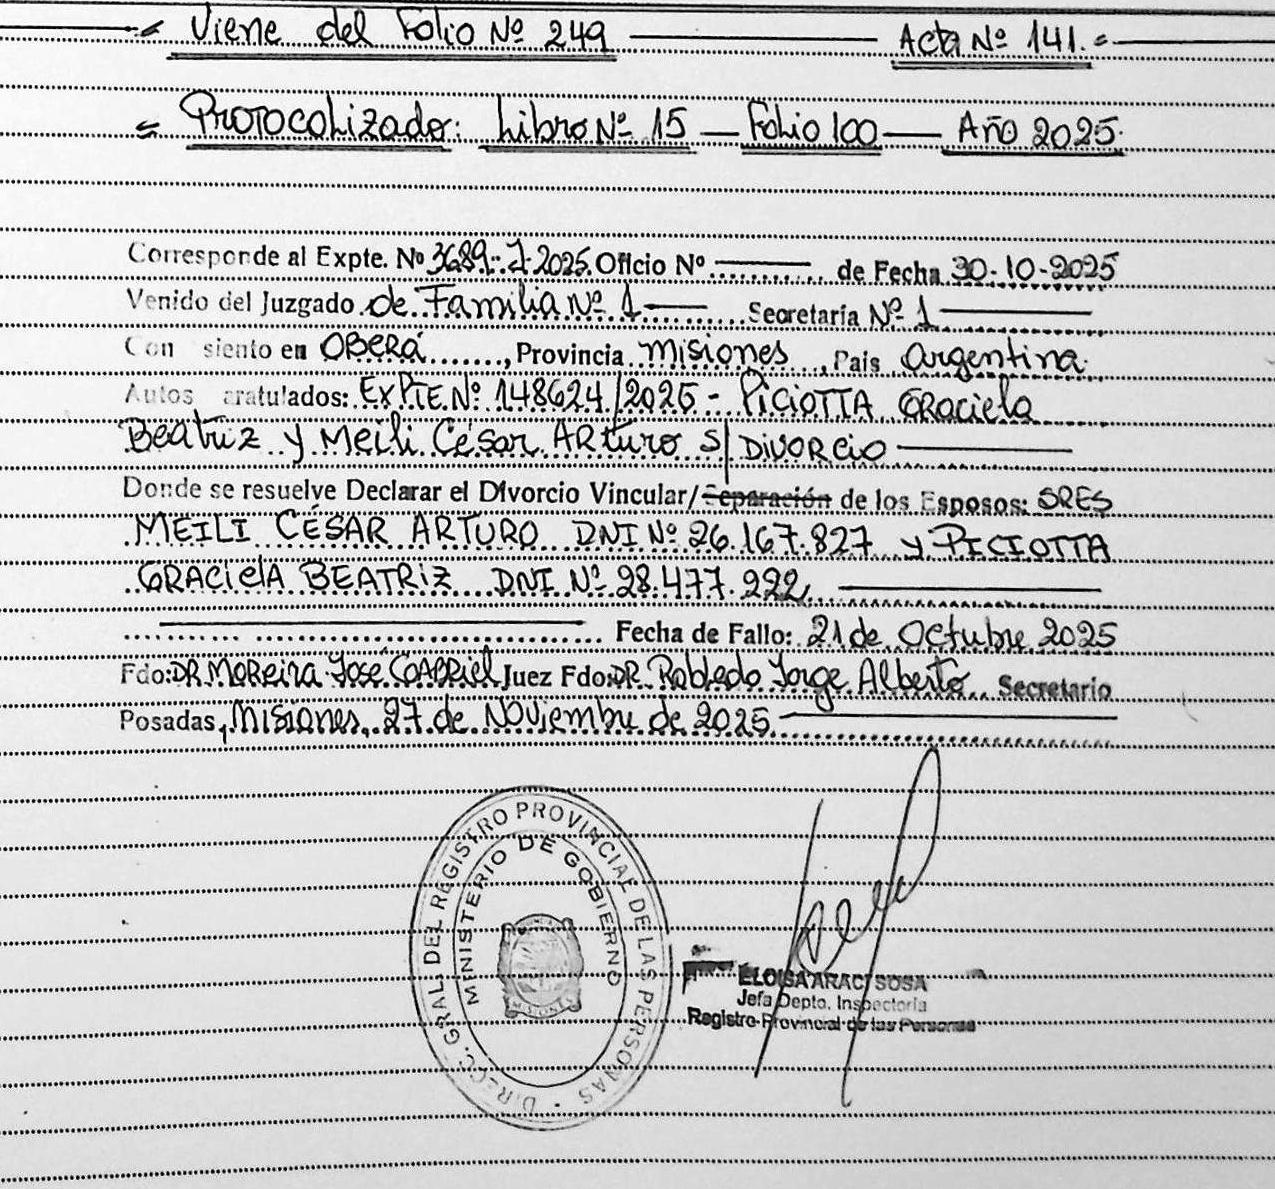 Viene del Folio Nº 249 Acta Nº 141.=
= Protocolizado: Libro Nº 15 — Folio 100 — Año 2025.
Corresponde al Expte. Nº 3689-J-2025. Oficio Nº ——— de Fecha 30-10-2025
Venido del Juzgado de Familia Nº 1 ——— Secretaría Nº 1 ———
Con siento en OBERÁ......., Provincia Misiones, Pais Argentina.
Autos aratulados: EXPTE. Nº 148624/2025 - PICIOTTA GRACIELA
Beatriz y Meili César Arturo S/ DIVORCIO ———
Donde se resuelve Declarar el Divorcio Vincular/Separación de los Esposos: SRES
MEILI CÉSAR ARTURO DNI Nº 26.167.827 y PICIOTTA
GRACIELA BEATRIZ DNI Nº 28.477.222 ———
Fecha de Fallo: 21 de Octubre 2025
Fdo: DR. Moreira José Gabriel Juez Fdo: DR. Robledo Jorge Alberto Secretario
Posadas, Misiones, 27 de Noviembre de 2025 ———
DIRECC. GRAL. DEL REGISTRO PROVINCIAL DE LAS PERSONAS
MINISTERIO DE GOBIERNO
MISIONES
ELOISA ARACI SOSA
Jefa Depto. Inspectoria
Registro Provincial de las Personas